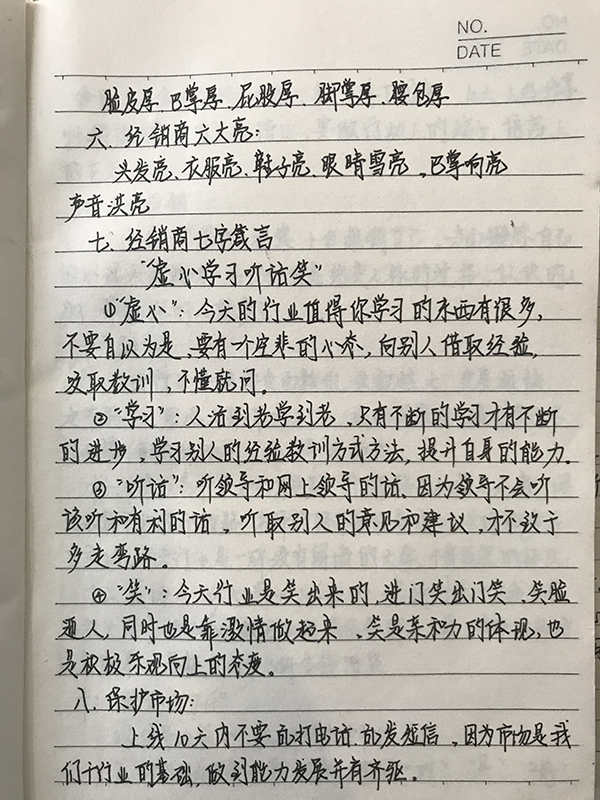 NO.
DATE
脸皮厚、巴掌厚、屁股厚、脚掌厚、腰包厚
六、经销商六大亮:
头发亮、衣服亮、鞋子亮、眼睛雪亮、巴掌响亮
声音洪亮
七、经销商七字箴言
“虚心学习听话笑”
①“虚心”:今天的行业值得你学习的东西有很多,
不要自以为是,要有一个空杯的心态,向别人借取经验,
吸取教训,不懂就问。
②“学习”:人活到老学到老,只有不断的学习才有不断
的进步,学习别人的经验教训方式方法,提升自身的能力。
③“听话”:听领导和网上领导的话,因为领导不会听
该听和有利的话,听取别人的意见和建议,才不致于
多走弯路。
④“笑”:今天行业是笑出来的,进门笑出门笑、笑脸
迎人,同时也是靠激情做起来、笑是亲和力的体现,也
是积极乐观向上的态度。
八、保护市场:
上线10天内不要乱打电话、乱发短信,因为市场是我
们行业的基础,做到能力发展并有齐驱。